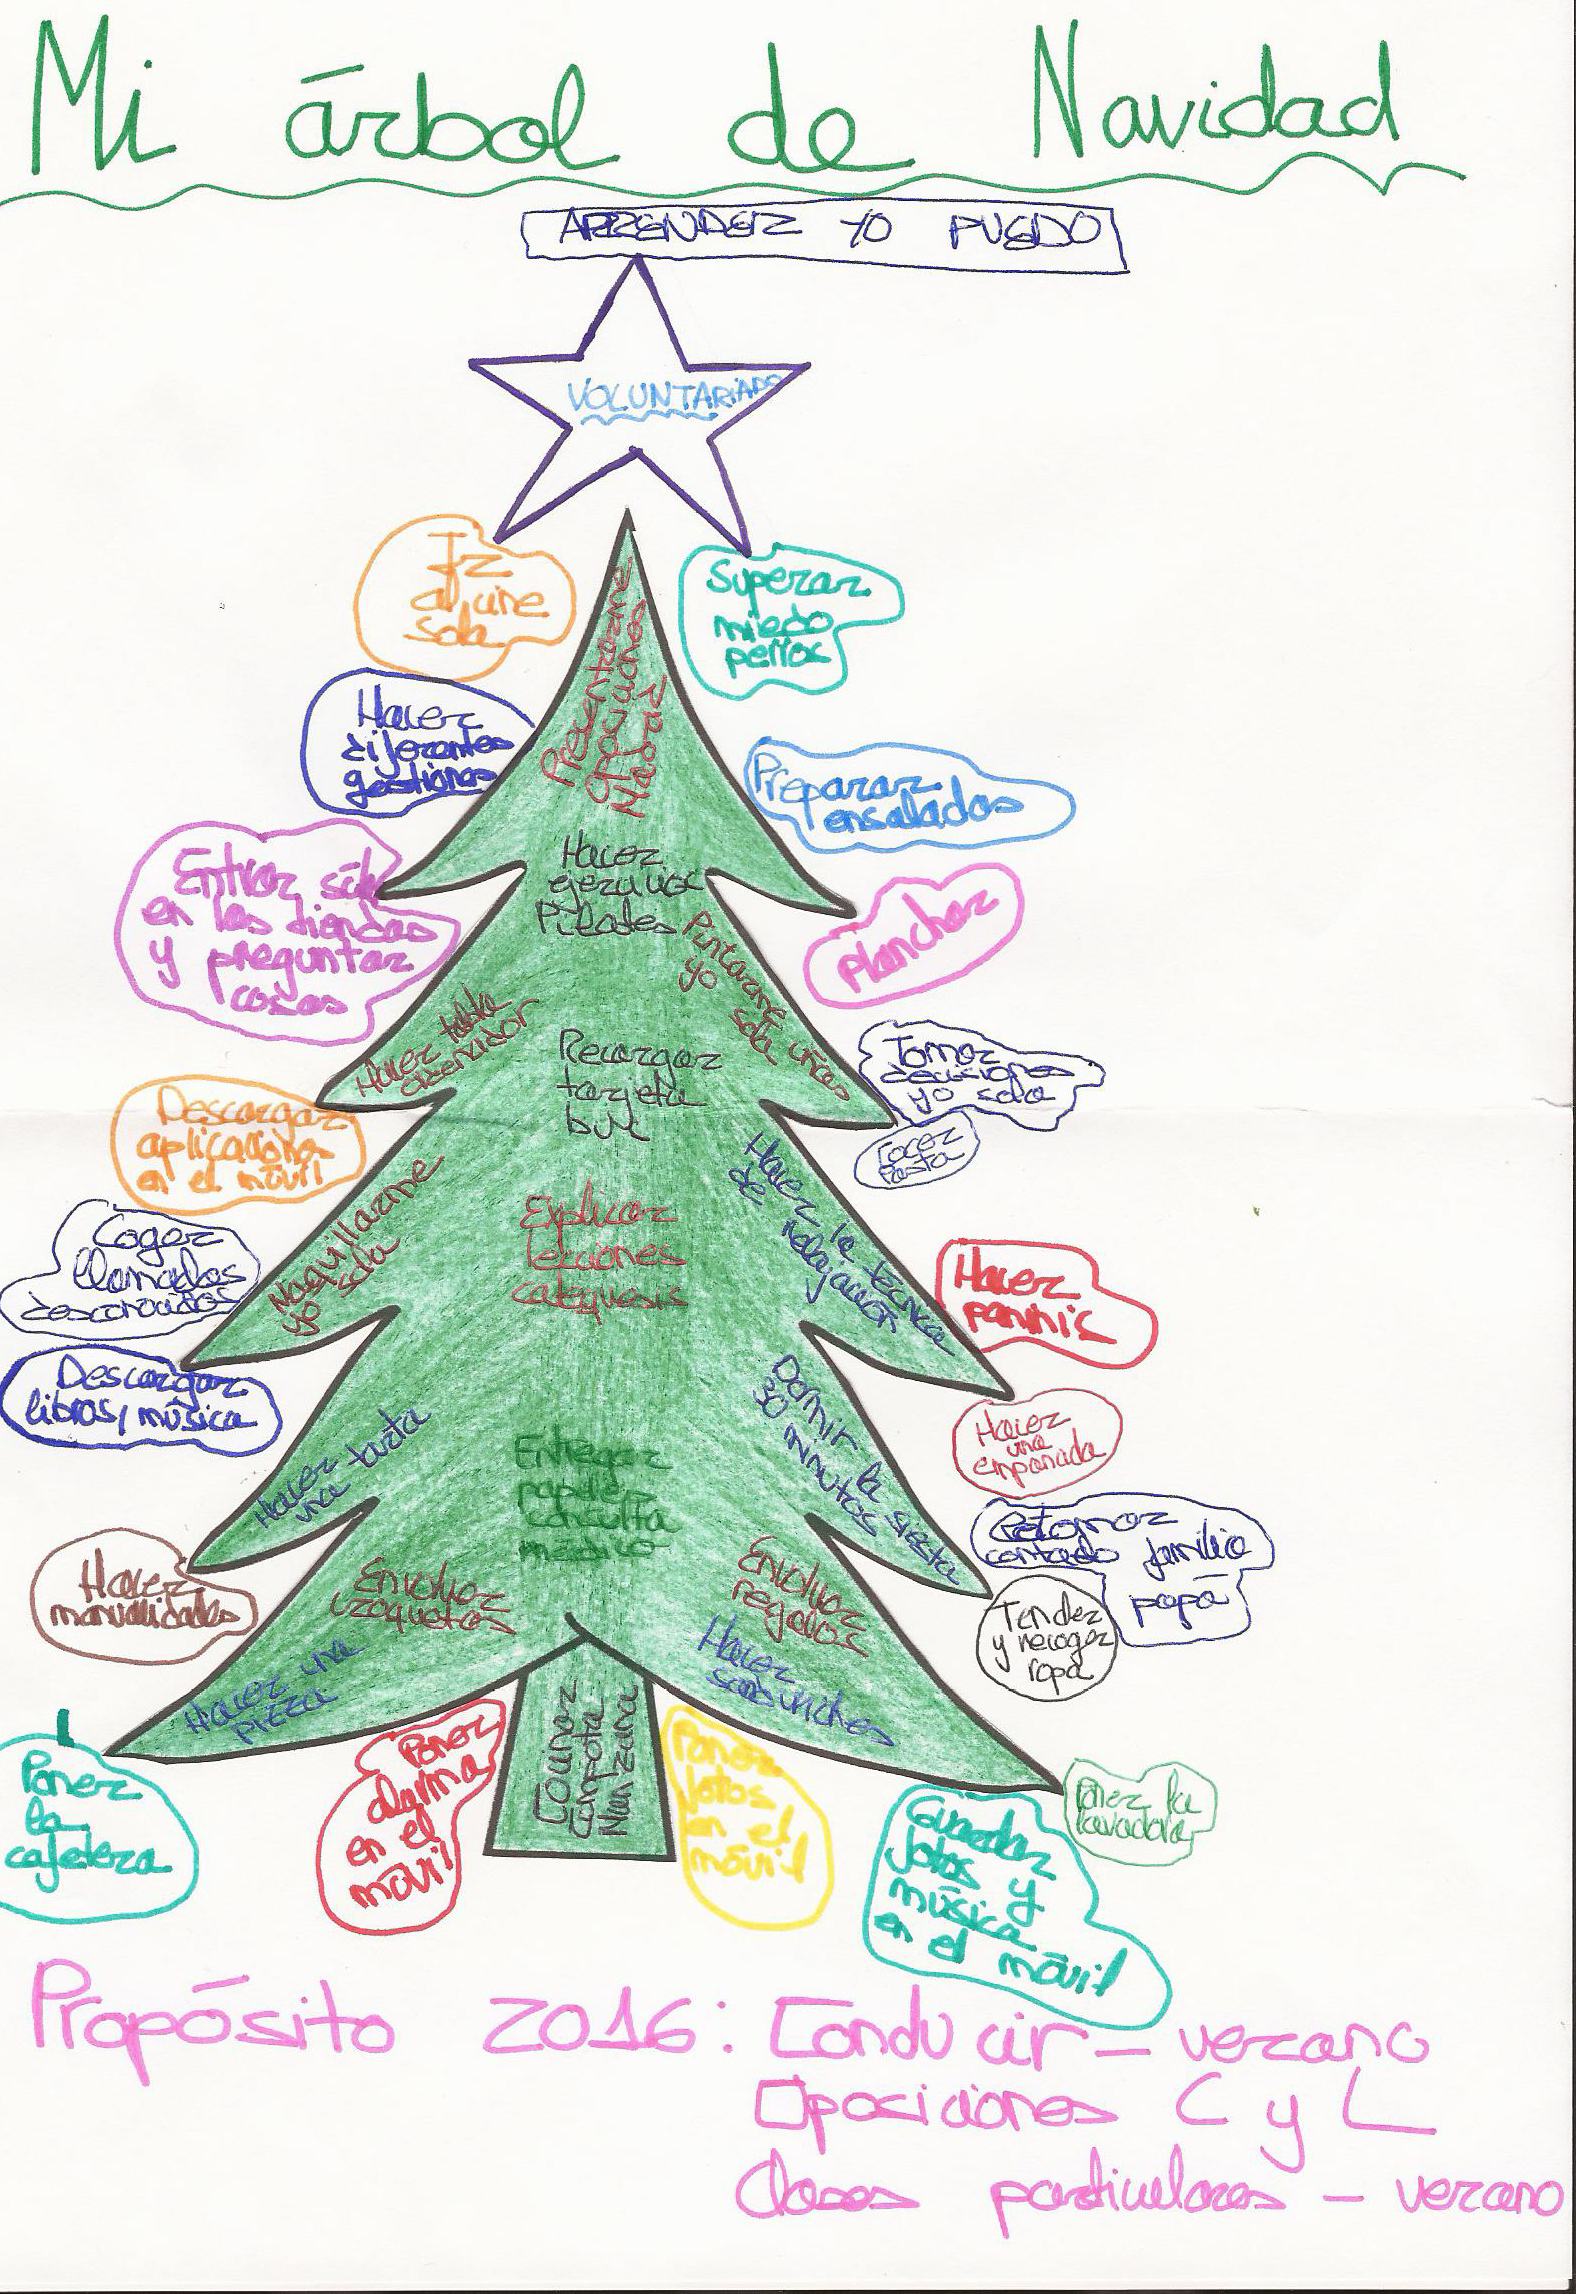 Mi árbol de Navidad
APRENDER YO PUEDO
VOLUNTARIADO
Ir
al cine
sola
Superar
miedo
perros
Presentarme
oposiciones
Madrid
Hacer
diferentes
gestiones
Preparar
ensaladas
Entrar sola
en las tiendas
y preguntar
cosas
Hacer
ejercicios
Pilates
Planchar
Pintarme
yo sola uñas
Hacer tabla
ordenador
Recargar
tarjeta
bus
Tomar
decisiones
yo sola
Cocer
Pasta
Descargar
aplicaciones
en el móvil
Maquillarme
yo sola
Explicar
lecciones
catequesis
Hacer la técnica
de relajación
Coger
llamadas
desconocidas
Hacer
paninis
Descargar
libros, música
Hacer tarta
una
Entregar
papeles
consulta
médico
Dormir la siesta
30 minutos
Hacer
una
empanada
Retomar
contacto familia
papá
Hacer
manualidades
Envolver
croquetas
Envolver
regalos
Tender
y recoger
ropa
Hacer una
pizza
Hacer
sandwiches
Poner
la
cafetera
Poner
alarma
en el
móvil
Cocinar
compota
Manzana
Poner
fotos
en el
móvil
Guardar
fotos y
música
en el móvil
Poner la
lavadora
Propósito 2016: Conducir - verano
Oposiciones C y L
Clases particulares - verano